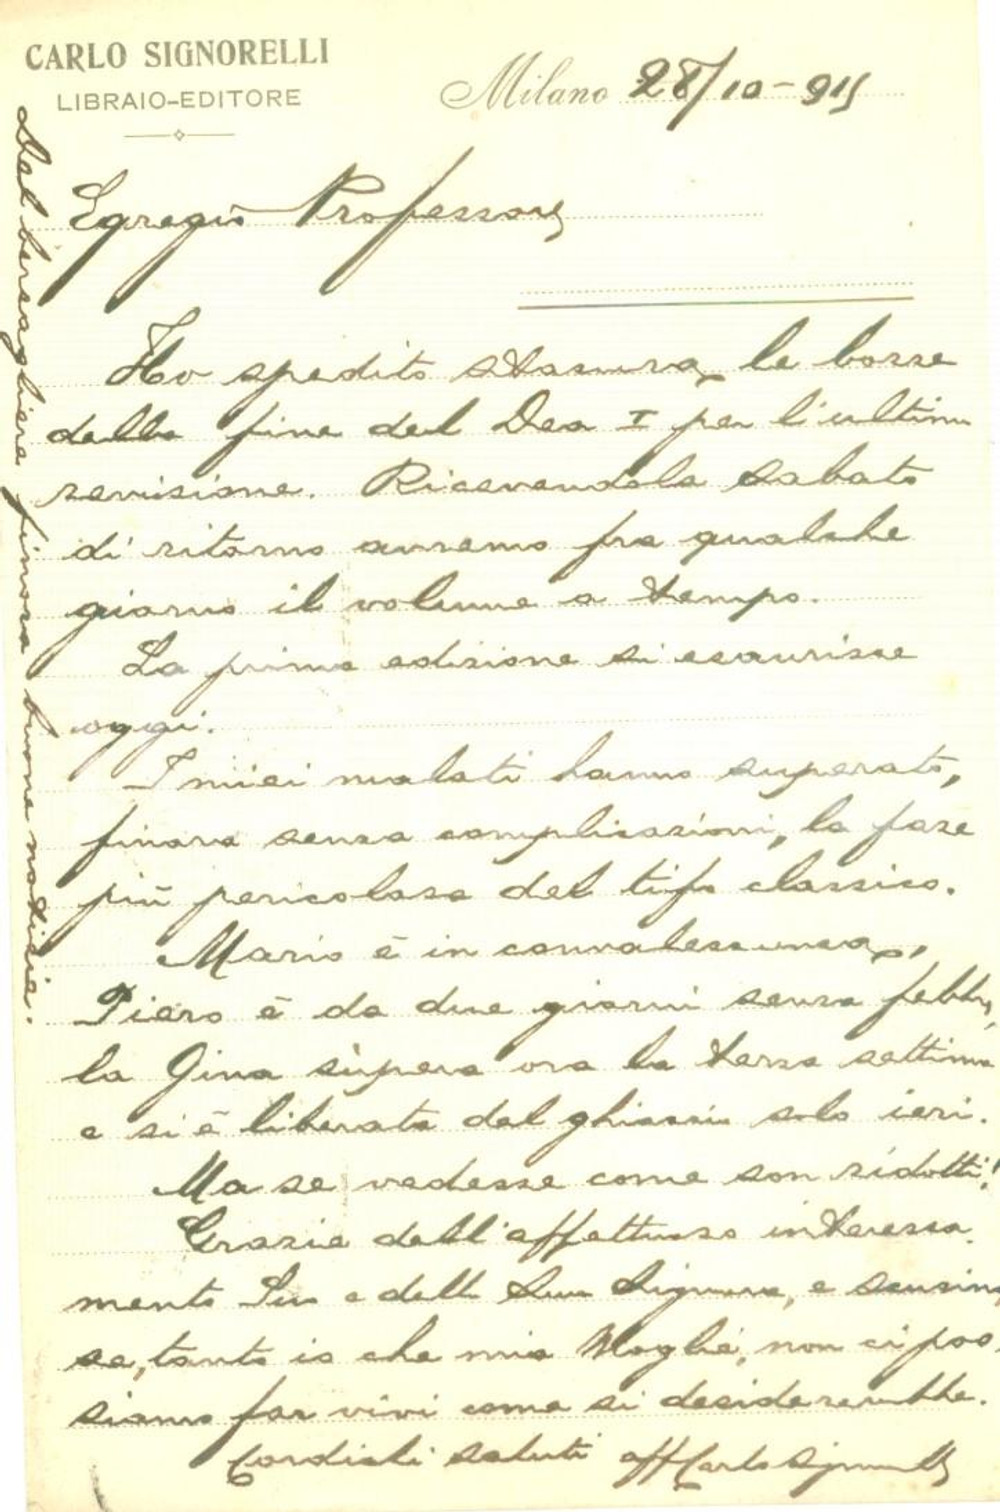 CARLO SIGNORELLI
LIBRAIO-EDITORE
Milano 28/10-915
Egregio Professore
Ho spedito stasera le bozze
della fine del Dea I per l'ultima
revisione. Ricevendole sabato
di ritorno avremo fra qualche
giorno il volume a tempo.
La prima edizione si esaurisce
oggi.
I miei malati hanno superato,
finora senza complicazioni, la fase
più pericolosa del tifo classico.
Mario è in convalescenza,
Piero è da due giorni senza febbre,
la Gina supera ora la terza settimana
e si è liberata dal ghiaccio solo ieri.
Ma se vedesse come son ridotti!
Grazie dell'affettuoso interessa-
mento Suo e della Sua Signora, e scusino
se, tanto io che mia Moglie, non ci pos-
siamo far vivi come si desidererebbe.
Cordiali saluti aff Carlo Signorelli
Dal bersagliere finora buone notizie.